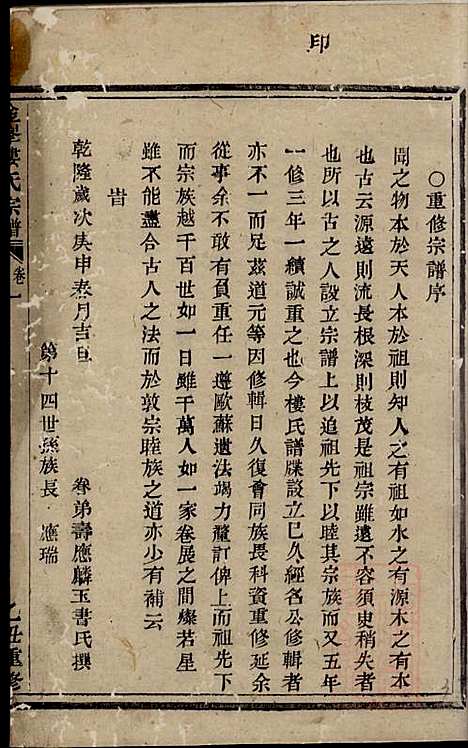 印
〇重修宗譜序
聞之物本於天人本於祖則知人之有祖如水之有源木之有本
也古云源遠則流長根深則枝茂是祖宗雖遠不容須吏稍失者
也所以古之人設立宗譜上以追祖先下以睦其宗族而又五年
一修三年一續誠重之也今樓氏譜牒設立已久經名公修輯者
亦不一而足茲道元等因修輯日久復會同族長科資重修延余
從事余不敢有負重任一遵歐蘇遺法竭力釐訂俾上而祖先下
而宗族越千百世如一日雖千萬人如一家卷展之間燦若星
雖不能盡合古人之法而於敦宗睦族之道亦少有補云
旹
乾隆歲次庚申春月吉旦 眷弟壽應麟玉書氏撰
第十四世孫族長 應瑞
樓氏宗譜 卷一 乙丑重修